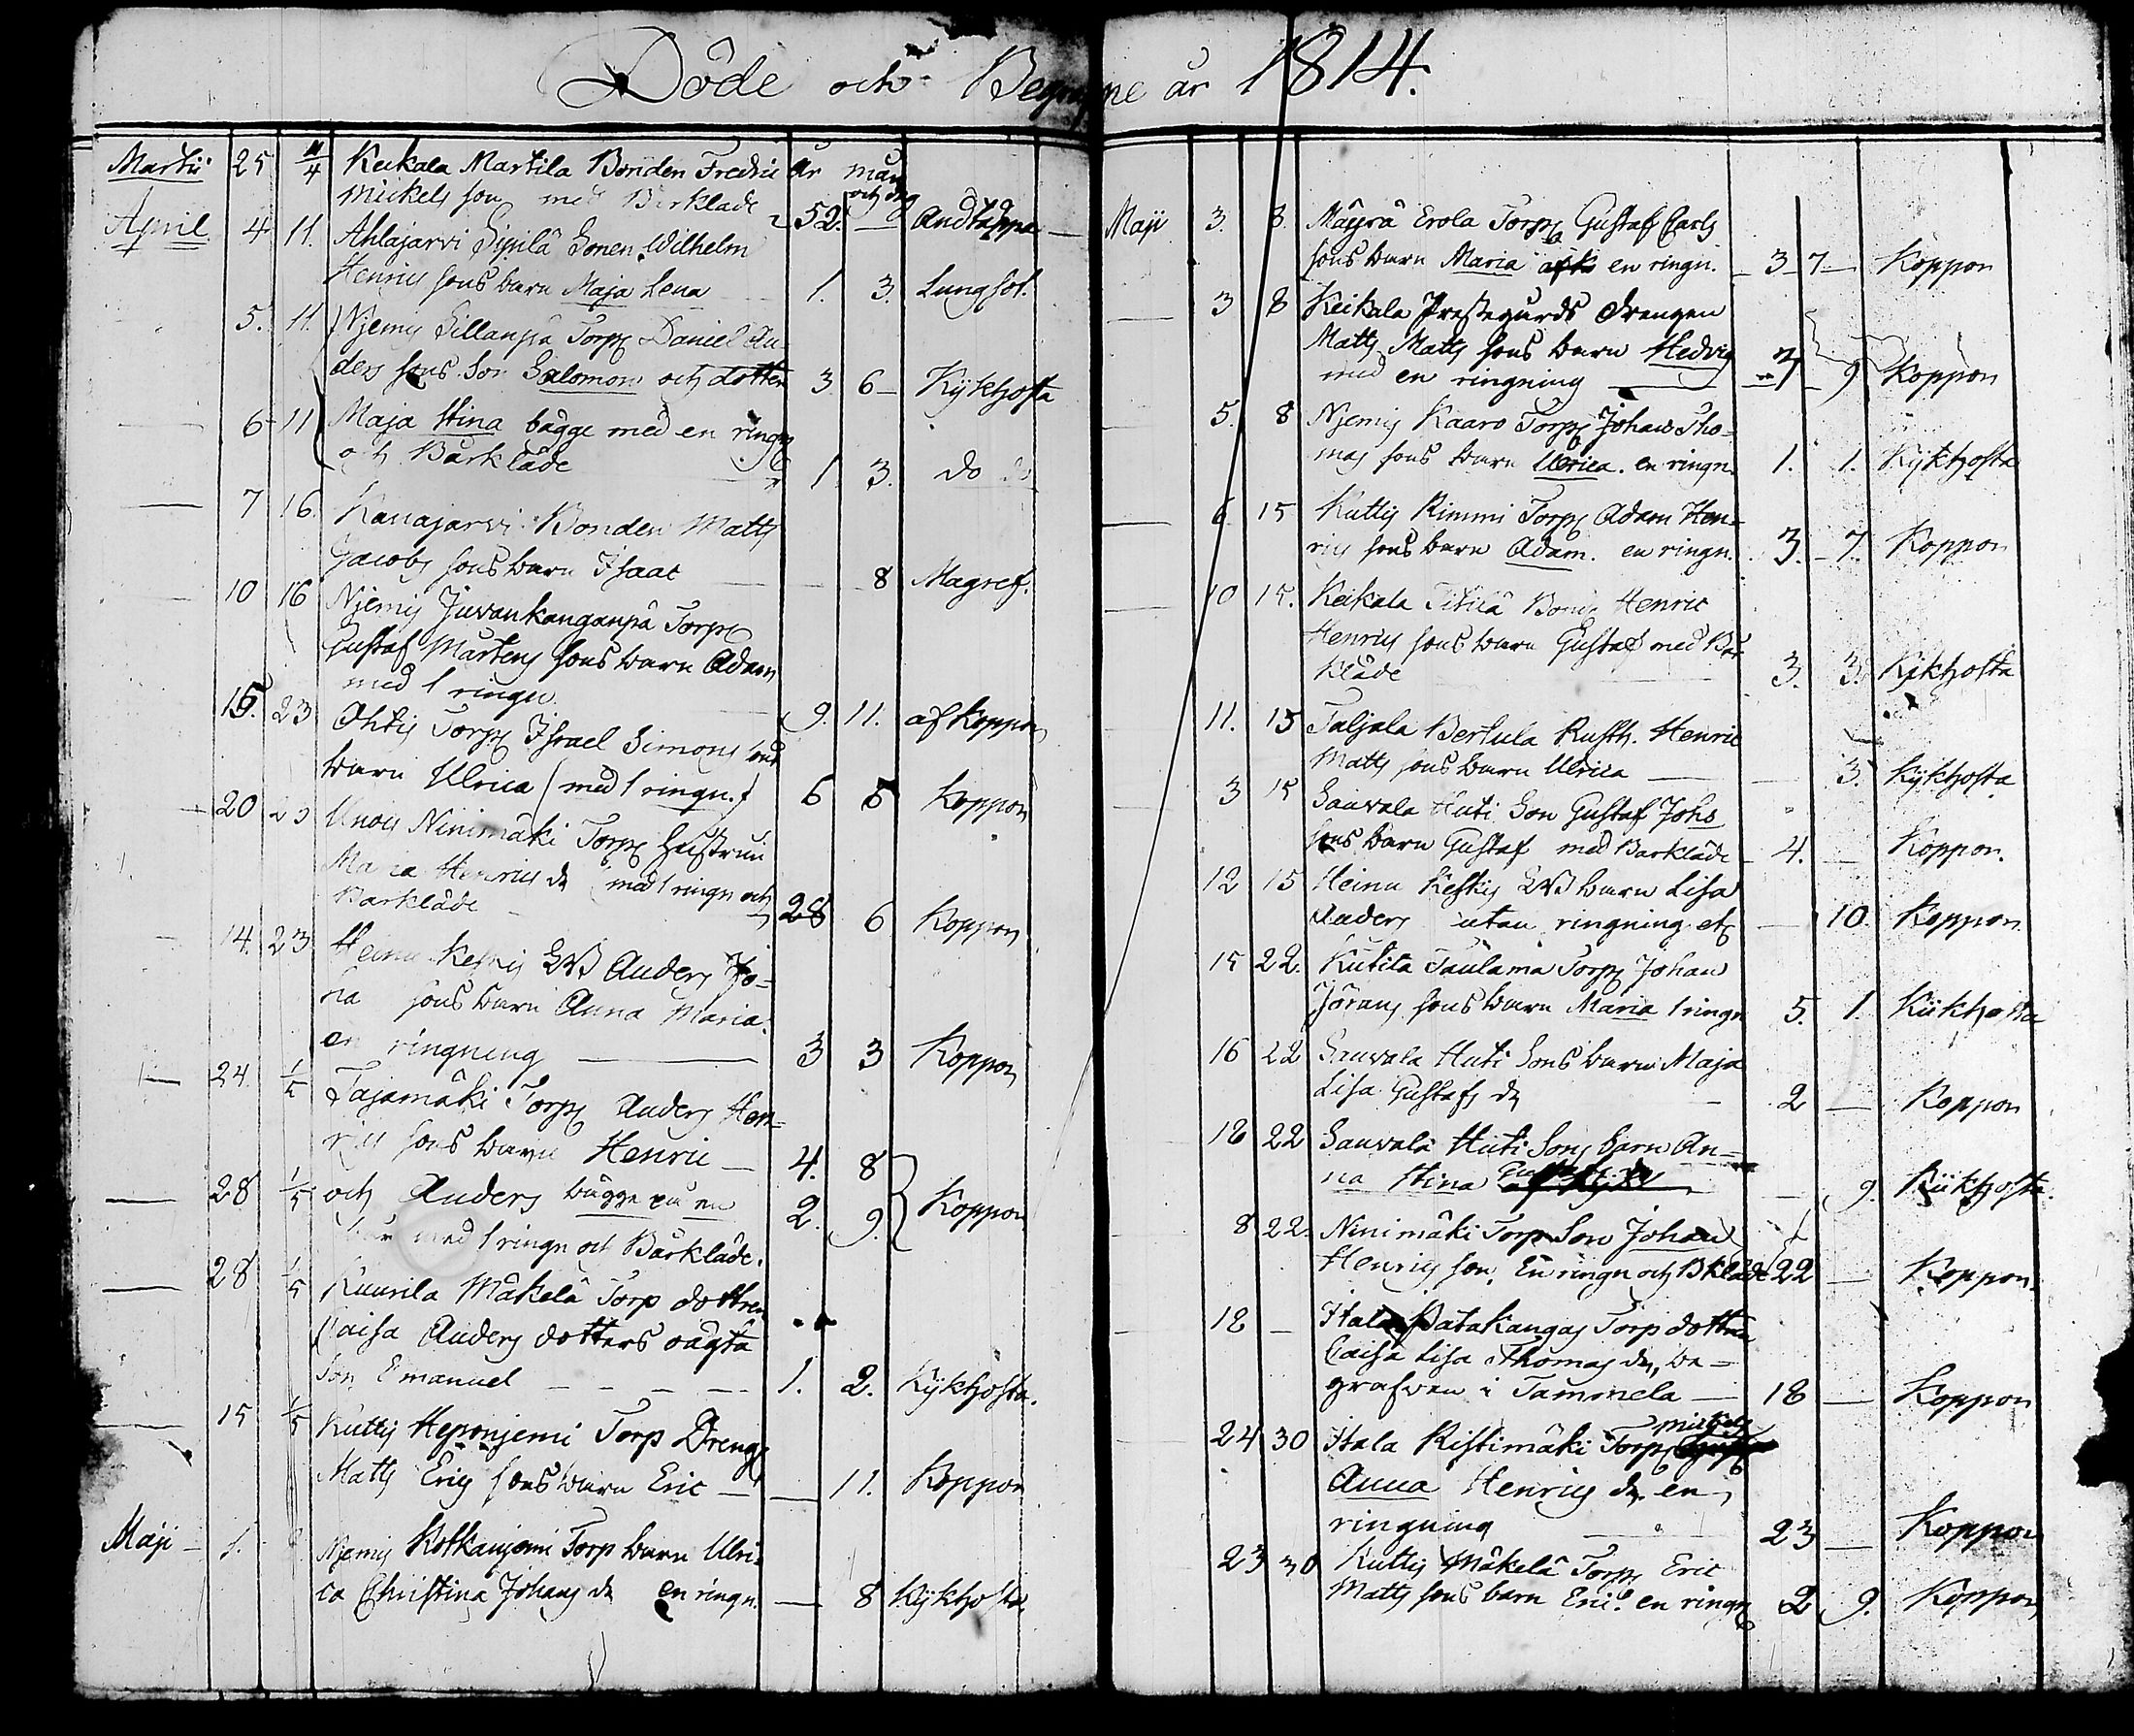 Döde och Begrafne år 1814.
Martii 25 11/4 Keikala Martila Bonden Fredric År mån
Mickels son med Bårkläde 52. — Andtäppa
och dag
April 4 11. Ahlajarvi Sipilä Sonen Wilhelm
Henrics sons barn Maja Lena 1. 3. Lungsot.
5. 11. Njemis Sillanpä Torp Daniel An
ders sons Son Salomon och dotter 3 6 Kykhosta
6 11 Maja Stina bägge med en ringn
och Bårkläde 1 3. do do
7 16. Kanajarvi Bonden Matts
Jacobs sons barn Isaac — 8 Magref.
10 16 Njemis Juvankanganpä Torp
Gustaf Mårtens sons barn Adam
med 1 ringn 9. 11. af Koppor
15. 23 Ohtis Torp Israel Simons sons
barn Ulrica (med 1 ringn.) 6 5 Koppor
20 23 Unois Ninimäki Torp Hustrun
Maria Henrics dr (med 1 ringn och
Barkläde 28 6 Koppor
14. 23 Heinu Keskis Anders Jo-
ha sons barn Anna Maria.
en ringning 3 3 Koppor
24 1/5 Tajamäki Torp Anders Hen-
rics sons barn Henric 4. 8
28 1/5 och Anders bägge på en 2. 9. Koppor
bår med 1 ringn och Bårkläde.
28 1/5 Kuurila Mäkelä Torp dottren
Caisa Anders dotters oägta
Son Emanuel 1. 2. Kykhosta.
15 1/5 Kuttis Heponjemi Torp Dreng
Matts Erics sons barn Eric — 11. Koppor
Maji 1. 8 Njemis Kotkanjemi Torp barn Ulri-
ca Christina Johans dr en ringn. — 8 Kykhosta.
Maji 3. 8. Mäyrä Erola Torp Gustaf Carls
sons barn Maria en ringn. 3 7 Koppor
3 8 Keikala Prestegårds Drengen
Matts Matts sons barn Hedvig
med en ringning 7 9 Koppor
5. 8 Njemis Kaaro Torp Johan Tho-
mas sons barn Ulrica. en ringn. 1. 1. Kykhosta
6 15 Kuttis Rimmi Torp Adam Hen-
rics sons barn Adam. en ringn. 3. 7. Koppor
10 15. Keikala Titilä Bond Henric
Henrics sons barn Gustaf med Bår
kläde 3. 3. Kykhosta
11. 15 Taljala Bertula Rusth. Henric
Matts sons barn Ulrica — 3. Kykhosta
3 15 Sauvala Huti Son Gustaf Johs
sons barn Gustaf med Barkläde 4. — Koppor.
12 15 Heinu Keskis barn Lisa
Anders utan ringning etc — 10. Koppor.
15 22. Kutila Taulama Torp Johan
Jörans sons barn Maria 1 ringn 5. 1. Kiikhosta
16 22 Sauvala Huti Sons barn Maja
Lisa Gustafs dr 2 — Koppor
18 22 Sauvala Huti Sons barn An-
na Stina — 9. Kiikhosta.
8 22. Ninimäki Torp Son Johan
Henrics son. En ringn och Bkläde 22 — Koppor.
18 — Itala Patakangas Torp dottren
Caisa Lisa Thomas dr, be-
grafven i Tammela 18 — Koppor
24 30 Itala Ristimäki Torp
Anna Henrics dr. en
ringning 23 — Koppor
23 30 Kuttis Mäkelä Torp Eric
Matts sons barn Eric. en ringn 2 9. Koppor